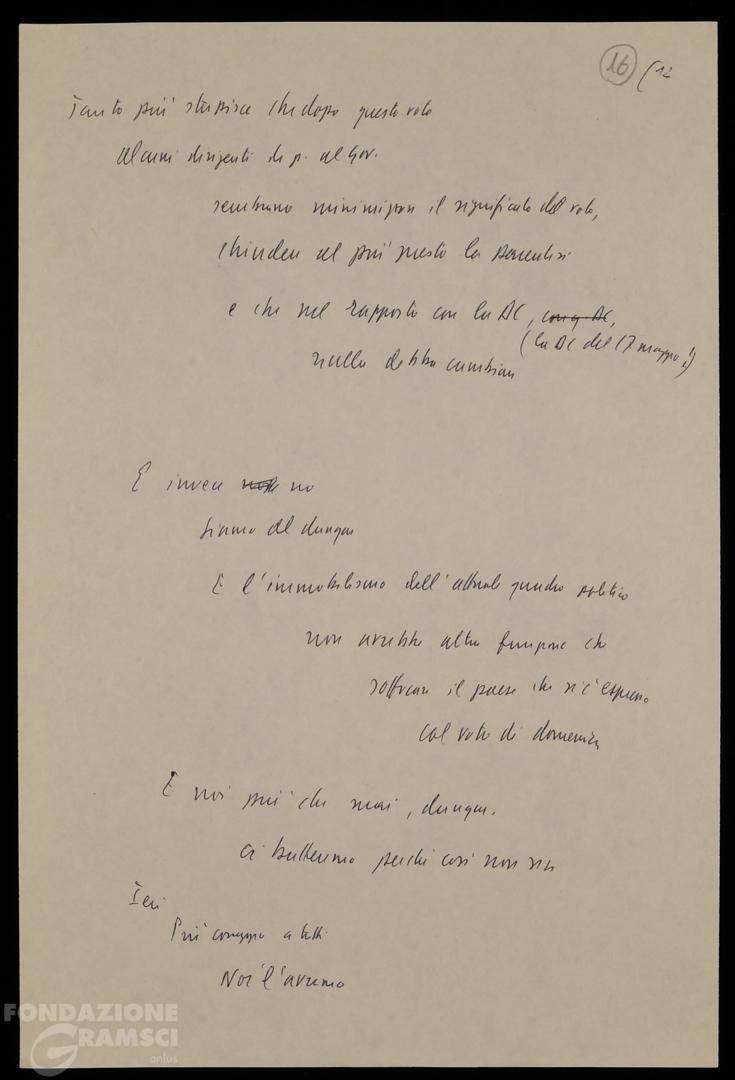 16 (12
Tanto più stupisce che dopo questo voto
alcuni dirigenti di p. al Gov.
sembrano minimizzare il significato del voto,
chiudere al più presto la parentesi
e che nel rapporto con la DC, con q. DC,
(la DC del 17 maggio!!)
nulla debba cambiare
E invece no
siamo al dunque
E l'immobilismo dell'attuale quadro politico
non avrebbe altra funzione che
soffocare il paese che si è espresso
col voto di domenica
E noi più che mai, dunque.
ci batteremo perché così non sia
Ieri
Più coraggio a tutti.
Noi l'avremo
FONDAZIONE
GRAMSCI
onlus